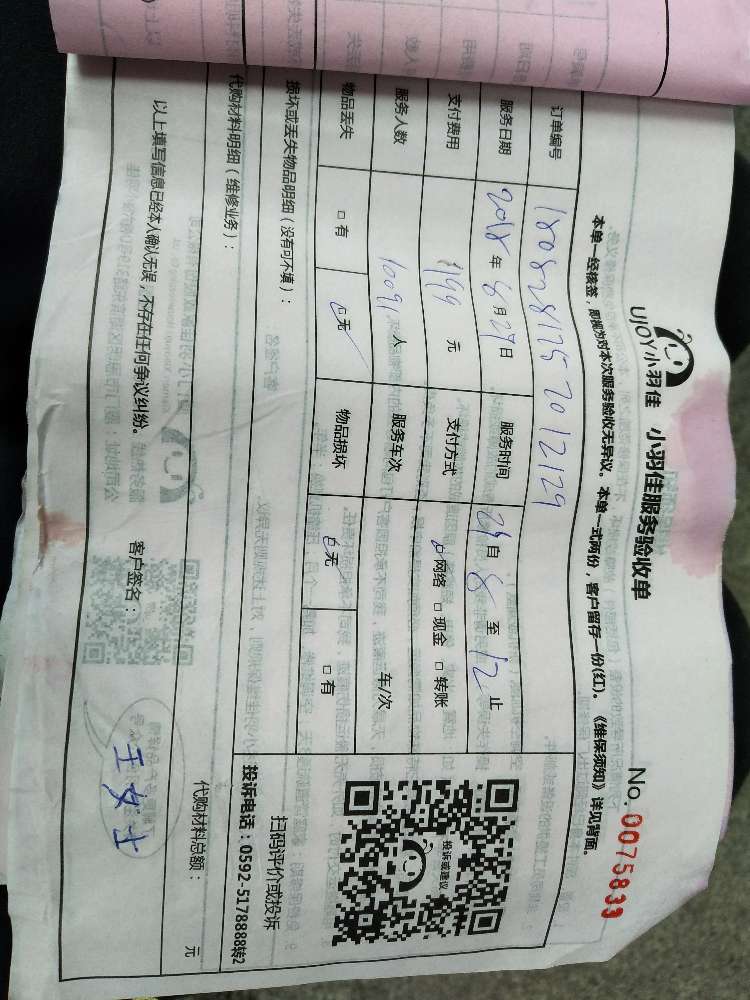 UJOY小羽佳 小羽佳服务验收单
No. 0075833
本单一经核签，即视为对本次服务验收无异议。本单一式两份，客户留存一份(红)。《维保须知》详见背面。
订单编号 18082811252012129
服务日期 2018年8月29日 服务时间 29自8至12止
支付费用 199元 支付方式 网络 □现金 □转账
服务人数 10091人 服务车次 车/次
物品丢失 □有 □无 物品损坏 □无 □有
损坏或丢失物品明细（没有可不填）：
投诉或建议
扫码评价或投诉
投诉电话：0592-5178888转2
代购材料明细（维修业务）：
代购材料总额： 元
以上填写信息已经本人确认无误，不存在任何争议纠纷。 客户签名： 王女士